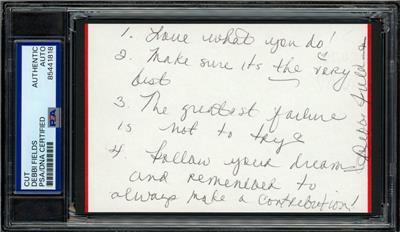 AUTHENTIC
AUTO
85441818
CUT
DEBBI FIELDS
PSA/DNA CERTIFIED
PSA
1. Love what you do!
2. Make sure its the very
best
3. The greatest failure
is not to try
4. Follow your dreams
and remember to
always make a contribution!
Debbi Fields